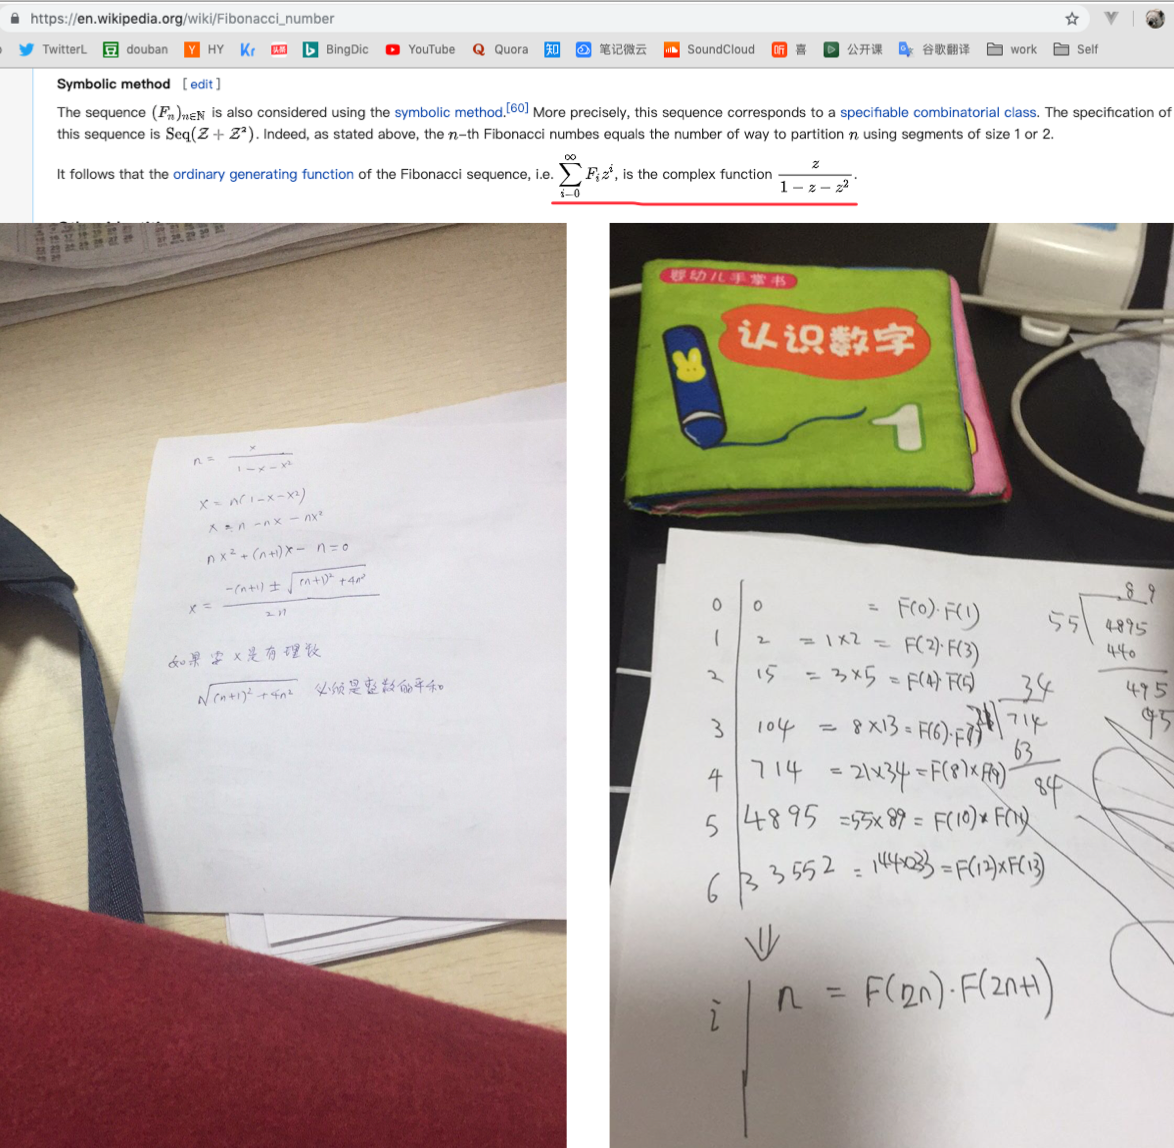 https://en.wikipedia.org/wiki/Fibonacci_number
TwitterL douban HY Kr 头条 BingDic YouTube Quora 知 笔记微云 SoundCloud 听 喜 公开课 谷歌翻译 work Self
Symbolic method [ edit ]
The sequence (Fₙ)ₙ∈ℕ is also considered using the symbolic method.[60] More precisely, this sequence corresponds to a specifiable combinatorial class. The specification of
this sequence is Seq(𝒵 + 𝒵²). Indeed, as stated above, the n-th Fibonacci numbes equals the number of way to partition n using segments of size 1 or 2.
It follows that the ordinary generating function of the Fibonacci sequence, i.e. ∑_{i=0}^{∞} Fᵢzⁱ, is the complex function z/(1 − z − z²).
n = x/(1-x-x²)
x = n(1-x-x²)
x = n-nx-nx²
nx²+(n+1)x-n=0
x = (-(n+1) ± √((n+1)²+4n²))/2n
如果 x是有理数
√((n+1)²+4n²) 必须是整数的平和
婴幼儿手掌书
认识数字
1
0 | 0 = F(0)·F(1)
1 | 2 = 1×2 = F(2)·F(3)
2 | 15 = 3×5 = F(4)·F(5)
3 | 104 = 8×13 = F(6)·F(7)
4 | 714 = 21×34 = F(8)×F(9)
5 | 4895 = 55×89 = F(10)×F(11)
6 | 33552 = 144×233 = F(12)×F(13)
⇓
i | n = F(2n)·F(2n+1)
89
55 4895
440
495
34
21 714
63
84